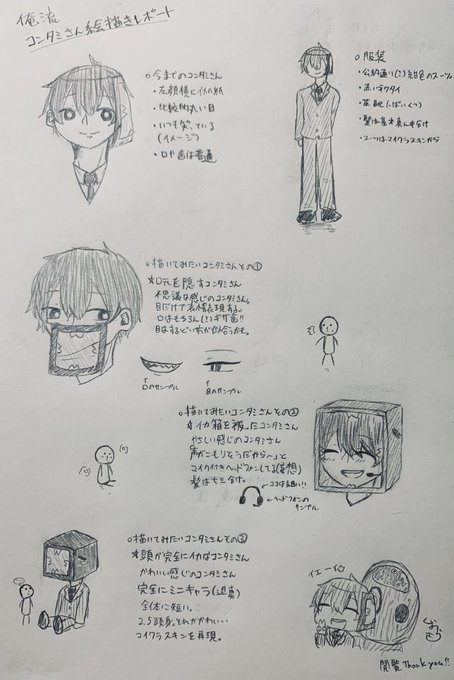 俺流
コンタミさん絵描きレポート
○今までのコンタミさん
・左顔横にイカの紙
・比較的丸い目
・いつも笑っている
(イメージ)
・口や歯は普通
○服装
・公約通り(?)紺色のスーツ
・赤いネクタイ
・革靴(っぽいくつ)
・髪は基本真ん中分け
・スーツはマイクラスキンから
○描いてみたいコンタミさんその①
★口元を隠すコンタミさん
不思議な感じのコンタミさん。
目だけで表情表現する。
口はもちろん(?)ギザ歯!!
目はするどい方が似合うかも。
↑
口のサンプル
↑
目のサンプル
○描いてみたいコンタミさんその②
★イカ箱を被ったコンタミさん
やさしい感じのコンタミさん
「声がこもりそうだから〜」と
マイク付きヘッドフォンしてる(仮想)
髪はセンター分け。
←ヘッドフォンの
サンプル
○描いてみたいコンタミさんその③
★頭が完全にイカなコンタミさん
かわいい感じのコンタミさん
完全にミニキャラ(迫真)
全体に短い。
2.5頭身。それがかわいい
マイクラスキンを再現。
イエーイ
閲覧Thank you!!